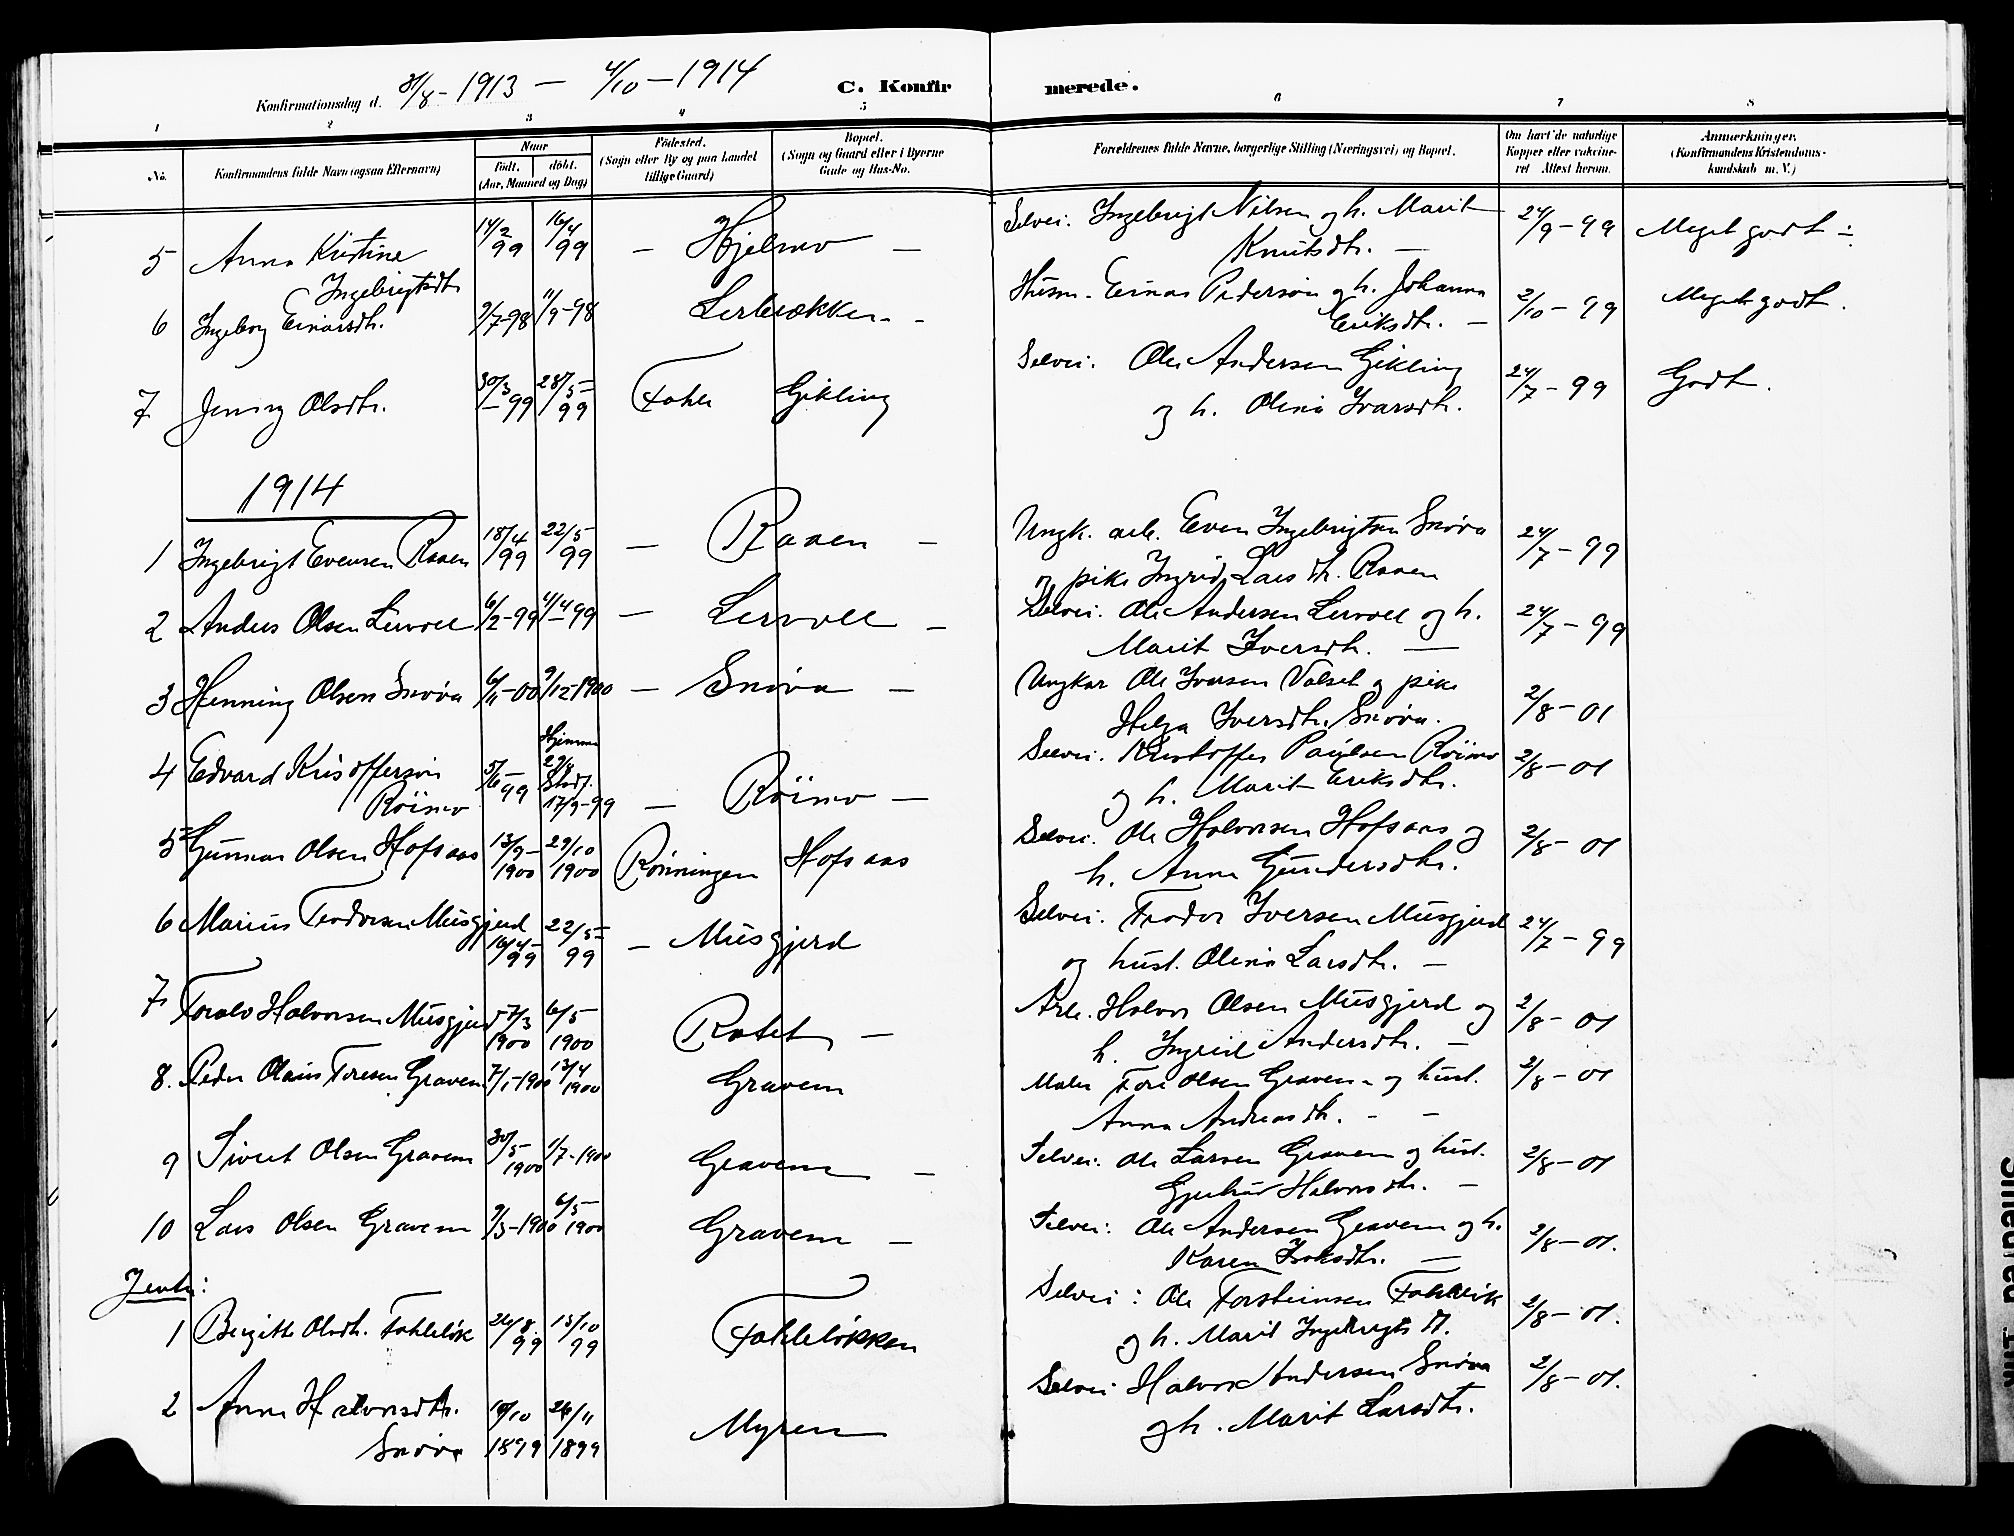 Konfirmationsdag d. 31/8 - 1913 — 4/10 — 1914
C. Konfirmerede.
1 2 3 4 5 6 7 8
No.
Konfirmandens fulde Navn (ogsaa Efternavn)
Naar
født. døbt.
(Aar, Maaned og Dag)
Fødested.
(Sogn eller By og paa Landet
tillige Gaard)
Bopæl.
(Sogn og Gaard eller i Byerne
Gade og Hus-No.
Forældrenes fulde Navne, borgerlige Stilling (Næringsvei) og Bopæl.
Om havt de naturlige
Kopper eller vakcine-
ret Attest herom.
Anmærkninger.
(Konfirmandens Kristendoms-
kundskab m. V.)
5 Anna Kristine Ingebrigtsdtr. 14/2 99 16/4 99 — Hjelmo — Selvei. Ingebrigt Nilsen og h. Marit
Knutsdtr. — 24/9 - 99 Meget godt ÷
6 Ingeborg Einarsdtr. 9/7-98 11/9-98 Lerbækken - Husm. Einar Pedersen og h. Johanna
Eriksdtr. — 2/10 - 99 Meget godt.
7 Jenny Olsdtr. 30/3 - 99 28/5 - 99 Fahle Gikling Selvei. Ole Andersen Gikling
og h. Olina Ivarsdtr. 24/7 - 99 Godt.
1914
1 Ingebrigt Evensen Raaen 18/4 99 22/5 99 — Raaen — Ungk. arb. Even Ingebrigtsen Snøva
og pike Ingrid Lars dtr. Raaen 24/7 - 99
2 Anders Olsen Lervoll 6/2-99 4/4-99 — Lervoll — Selvei. Ole Andersen Lervoll og h.
Marit Iversdtr. — 24/7 - 99
3 Henning Olsen Snøva 6/11-00 9/12-1900 — Snøva — Ungkar Ole Iversen Volset og pike
Helga Iversdtr. Snøva. 2/8 - 01
4 Edvard Kristoffersen
Röimo 5/6 - 99 Hjemme
Stadf.
17/9-99 — Röimo — Selvei. Kristoffer Paulsen Röimo
og h. Marit Eriksdtr. 2/8 - 01
5 Gunnar Olsen Hofsaas 13/9 - 1900 29/10 1900 Rönningen Hofsaas Selvei. Ole Halvorsen Hofsaas og
h. Anna Gundersdtr. 2/8 - 01
6 Marius Teodorsen Musgjerd 16/4 - 99 22/5 - 99 — Musgjerd Selvei. Teodor Iversen Musgjerd
og hust. Olina Larsdtr. — 24/7 - 99
7. Toralv Halvorsen Musgjerd 17/3 1900 6/5 1900 Rotet — Arb. Halvor Olsen Musgjerd og
h. Ingrid Andersdtr. — 2/8 - 01
8. Peder Olaus Toresen Gravem 7/1-1900 13/4 1900 Gravem Maler Tore Olsen Gravem - og hust.
Anna Andreasdtr. - - 2/8 - 01
9 Sivert Olsen Gravem 30/5 - 1900 1/7-1900 Gravem — Selvei. Ole Larsen Gravem og hust.
Gjertrud Halvorsdtr. — 2/8 - 01
10 Lars Olsen Gravem 9/3-1900 6/5 - 1900 Gravem — Selvei: Ole Andersen Gravem og h.
Karen Isaksdtr. — 2/8 - 01.
Jenter:
1 Birgitte Olsdtr. Fahleløk 26/8 99 15/10 99 Fahleløkken Selvei: Ole Torsteinsen Fahleløk
og h. Marit Ingebrigts dt. 2/8 - 01.
2 Anne Halvorsdtr.
Snøva 19/10 1899 26/11 1899 Myren Selvei Halvor Andersen Snøva
og h. Marit Larsdtr. 2/8 - 01.